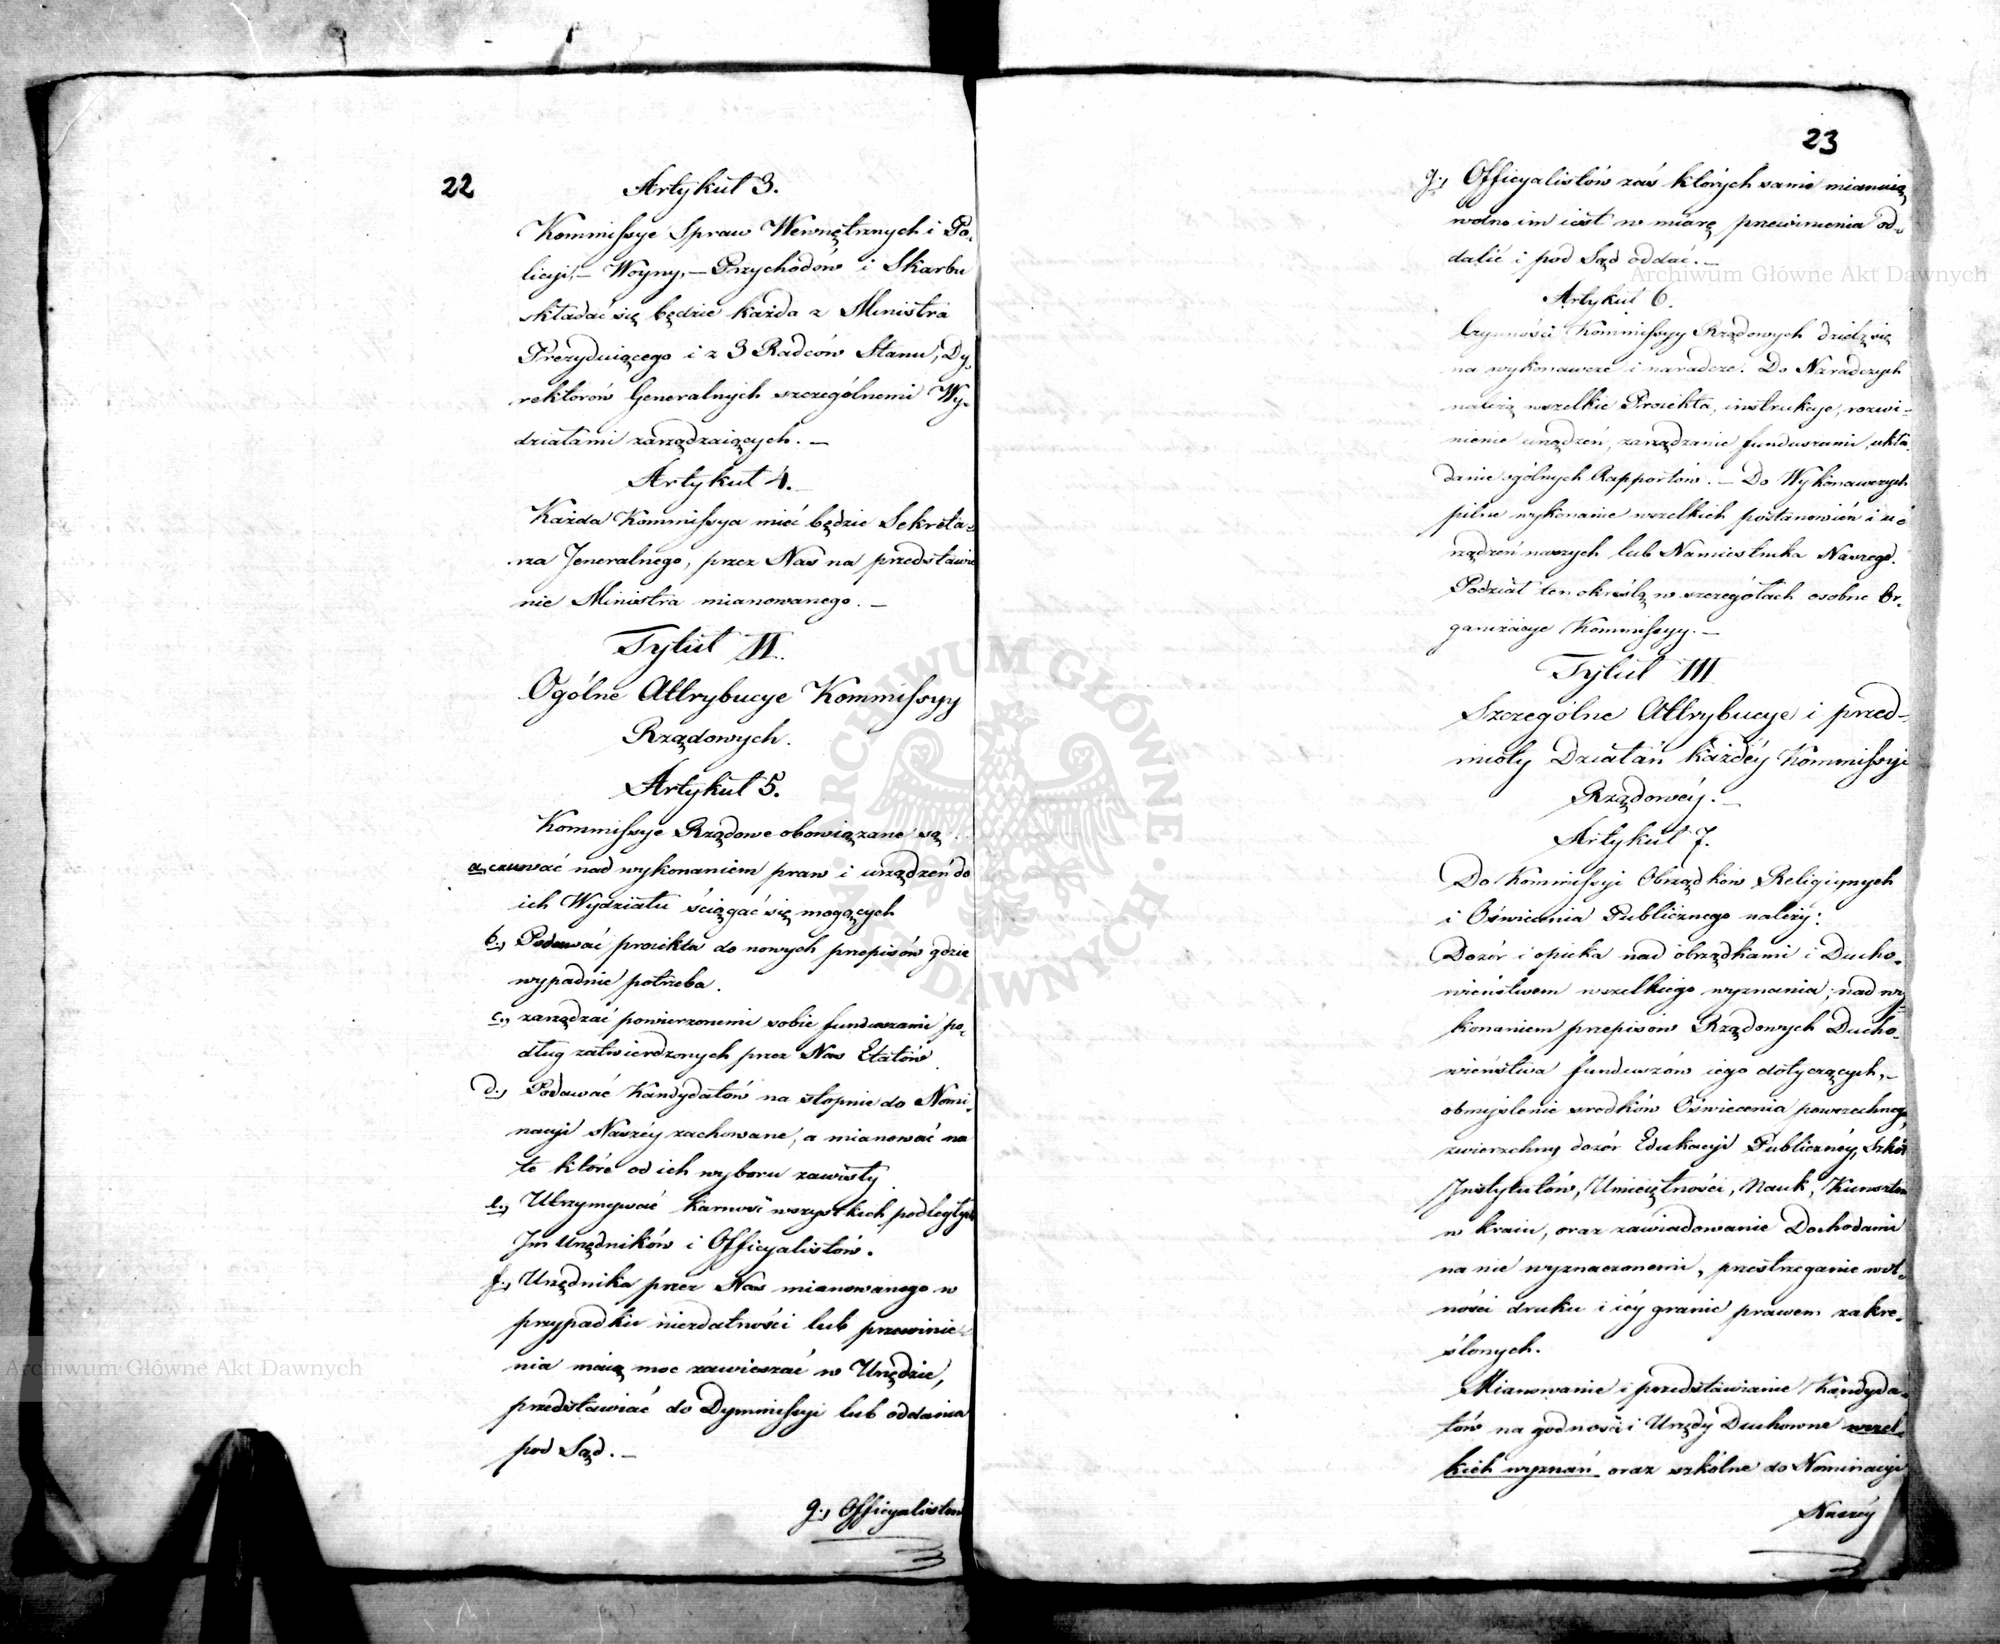 22
Artykuł 3.
Kommissye Spraw Wewnętrznych i Po-
licyi, – Woyny, – Przychodów i Skarbu
składać się będzie każda z Ministra
Prezyduiącego i z 3 Radców Stanu, Dy-
rektorów Generalnych szczególnemi Wy-
działami zarządzaiących. –
Artykuł 4.
Każda Kommissya mieć będzie Sekreta-
rza Jeneralnego, przez Nas na przedstawie
nie Ministra mianowanego. –
Tytuł II.
Ogólne Attrybucye Kommissyy
Rządowych.
Artykuł 5.
Kommissye Rządowe obowiązane są
a, czuwać nad wykonaniem praw i urządzeń do
ich Wydziału ściągać się mogących
b., Podawać proiekta do nowych przepisów gdzie
wypadnie potrzeba.
c., zarządzać powierzonemi sobie funduszami po-
dług zatwierdzonych przez Nas Etatów.
d., Podawać Kandydatów na stopnie do Nomi-
nacyi Naszéy zachowane, a mianować na
te które od ich wyboru zawisły
e., Utrzymywać karność wszystkich podległych
Im Urzędników i Officyalistów.
f., Urzędnika przez Nas mianowanego w
przypadku niezdatności lub przewinie-
nia maią moc zawieszać w Urzędzie,
przedstawiać do Dymmissyi lub oddania
pod Sąd. –
g., Officyalistów
23
g., Officyalistów zaś których sami mianuią
wolno im iest w miarę przewinienia od-
dalić i pod Sąd oddać. –
Artykuł 6.
Czynności Kommissyy Rządowych dzielą się
na wykonawcze i naradcze. Do Naradczych
należą wszelkie Proiekta, instrukcye, rozwi-
nienie urządzeń, zarządzanie funduszami, ukła
danie ogólnych Rapportów. – Do Wykonawczych
pilne wykonanie wszelkich postanowień i u-
rządzeń naszych lub Namiestnika Naszego.
Podział ten określą w szczegółach osobne Or-
ganizacye Kommissyy. –
Tytuł III
Szczególne Attrybucye i przed-
mioty Działań każdéy Kommissyi
Rządowéy. –
Artykuł 7.
Do Kommissyi Obrządków Religiynych
i Oświecenia Publicznego należy:
Dozór i opieka nad obrządkami i Ducho-
wieństwem wszelkiego wyznania; nad wy-
konaniem przepisów Rządowych Ducho-
wieństwa funduszów iego dotyczących, –
obmyślenie srodków Oświecenia powszechnego,
zwierzchny dozór Edukacyi Publicznéy, Szkół
Instytutów, Umieiętności, Nauk, Kunsztów
w kraiu, oraz zawiadowanie Dochodami
na nie wyznaczonemi, przestrzeganie wol-
ności druku i iéy granic prawem zakre-
ślonych.
Mianowanie i przedstawianie Kandyda-
tów na godności i Urzędy Duchowne wszel-
kich wyznań oraz szkólne do Nominacyi
Naszéy
Archiwum Główne Akt Dawnych
Archiwum Główne Akt Dawnych
ARCHIWUM GŁÓWNE AKT DAWNYCH